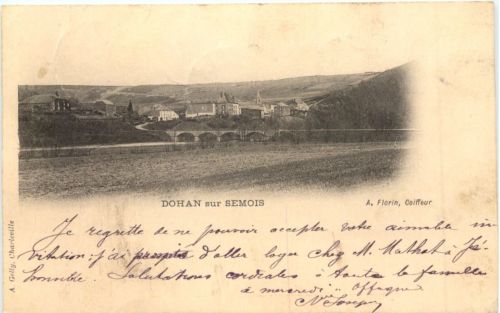 DOHAN sur SEMOIS
A. Florin, Coiffeur
A. Gilly, Charleville
Je regrette de ne pouvoir accepter votre aimable in
vitation. j'ai d'aller loger chez M. Mathot à
Salutations cordiales à toute la famille
à mercredi